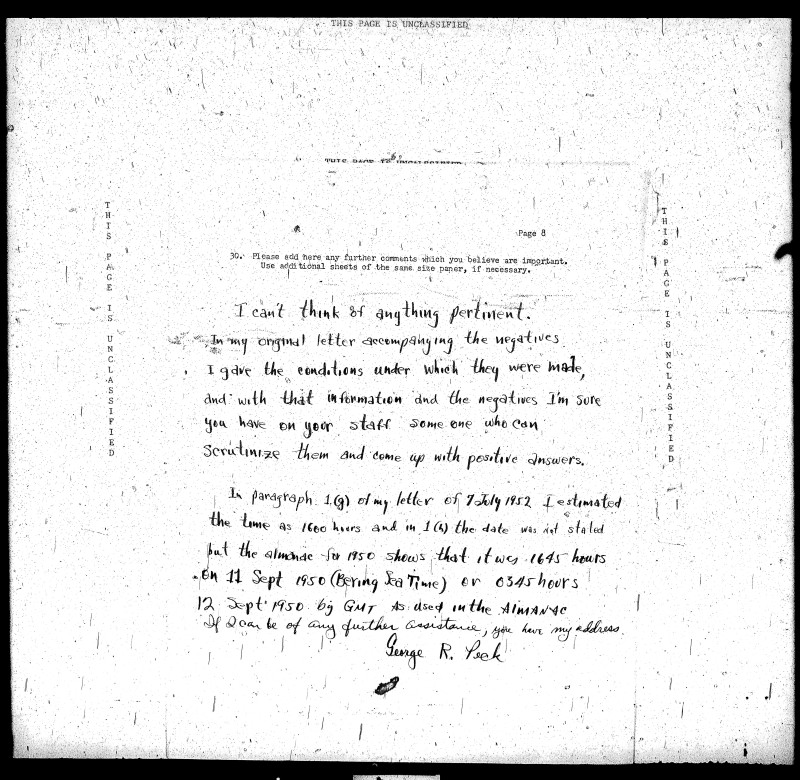 THIS PAGE IS UNCLASSIFIED
THIS PAGE IS UNCLASSIFIED
THIS PAGE IS UNCLASSIFIED
THIS PAGE IS UNCLASSIFIED
Page 8
30. Please add here any further comments which you believe are important.
Use additional sheets of the same size paper, if necessary.
I can't think of anything pertinent.
In my original letter accompanying the negatives
I gave the conditions under which they were made,
and with that information and the negatives I'm sure
you have on your staff some one who can
scrutinize them and come up with positive answers.
In paragraph 1(g) of my letter of 7 July 1952 I estimated
the time as 1600 hours and in 1(h) the date was not stated
but the almanac for 1950 shows that it was 1645 hours
on 11 Sept 1950 (Bering Sea Time) or 0345 hours
12 Sept 1950 by GMT as used in the ALMANAC
If I can be of any further assistance, you have my address.
George R. Peck